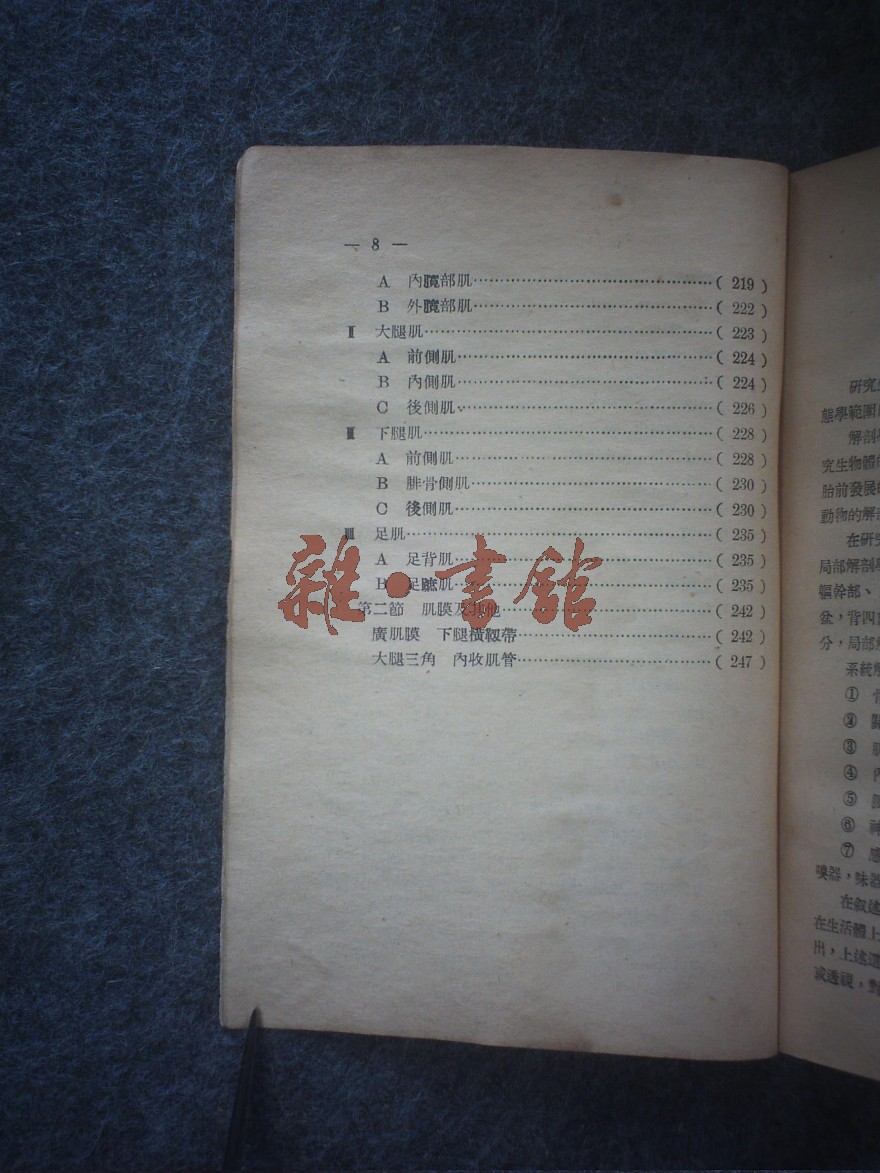 — 8 —
A 內臗部肌……(219)
B 外臗部肌……(222)
Ⅱ 大腿肌……(223)
A 前側肌……(224)
B 內側肌……(224)
C 後側肌……(226)
Ⅲ 下腿肌……(228)
A 前側肌……(228)
B 腓骨側肌……(230)
C 後側肌……(230)
足肌……(235)
A 足背肌……(235)
B 足蹠肌……(235)
第二節 肌膜及其他……(242)
廣肌膜 下腿橫韌帶……(242)
大腿三角 內收肌管……(247)
雜·書館
研究
態學範圍
解剖
究生物體
胎前發展
動物的解
在研究
局部解剖
軀幹部、
盆，背四
分，局部
系統
①
②
③
④
⑤
⑥ 神
⑦ 感
嗅器，味器
在叙述
在生活體上
出，上述
或透視，